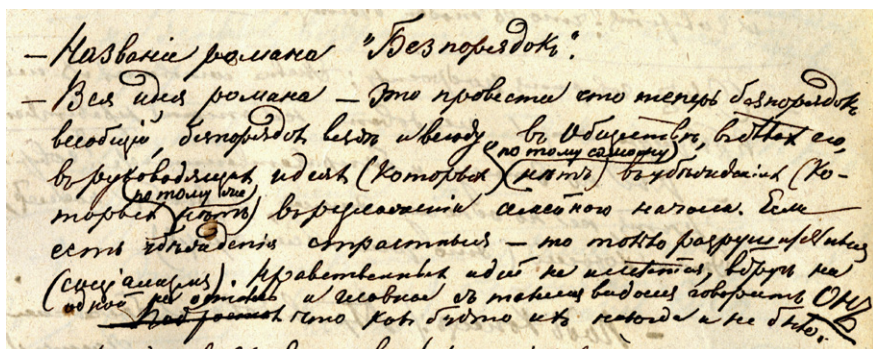 — Названіе романа "Безпорядокъ".
— Вся идея романа — это провести что теперь безпорядокъ
всеобщій, безпорядокъ вездѣ и всюду, въ Обществѣ, въ дѣлахъ его,
въ руководящихъ идеяхъ (которыхъ по тому самому нѣтъ) въ убѣжденіяхъ (ко-
торыхъ по тому же нѣтъ) въ разложеніи семейнаго начала. Если
есть убѣжденія страстныя — то только разрушительныя
(соціализмъ). Нравственныхъ идей не имѣется, вдругъ ни
одной не осталось и главное съ такимъ видомъ говоритъ ОНЪ
что какъ будто ихъ никогда и не было.